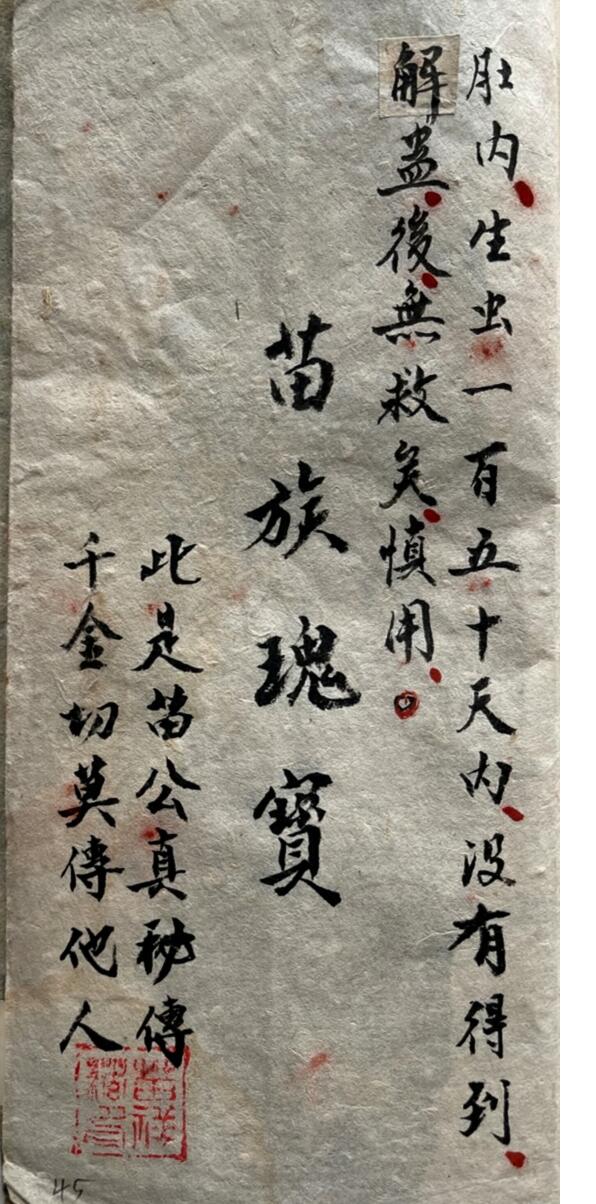 肚内、生虫一百五十天内、没有得到、
解蛊、後、無救矣、慎用、。
苗族瑰寶
此是苗公真秘傳
千金切莫傳他人
45